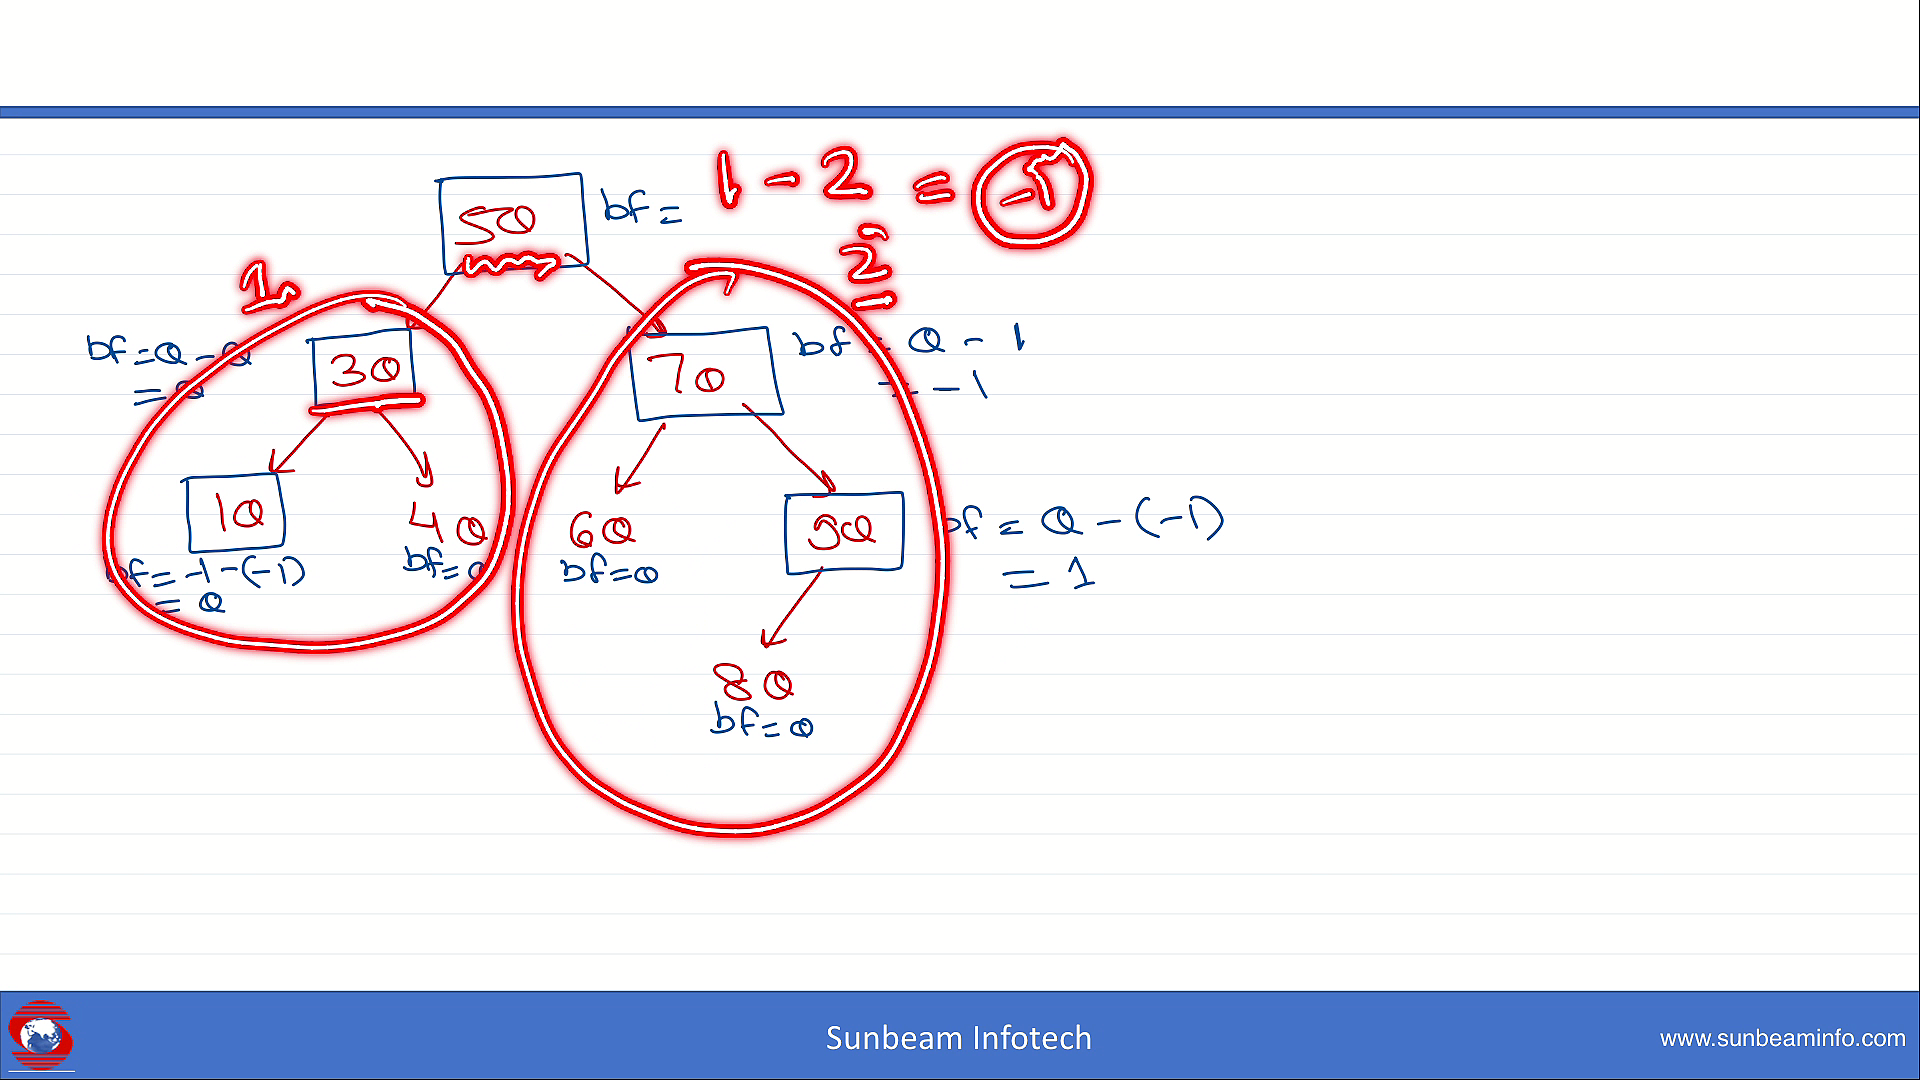 50 bf = 1 - 2 = -1
1
2
bf = 0 - 0
= 0
30
70
bf = 0 - 1
= -1
10
bf = -1 - (-1)
= 0
40
bf = 0
60
bf = 0
90
bf = 0 - (-1)
= 1
80
bf = 0
Sunbeam Infotech
www.sunbeaminfo.com